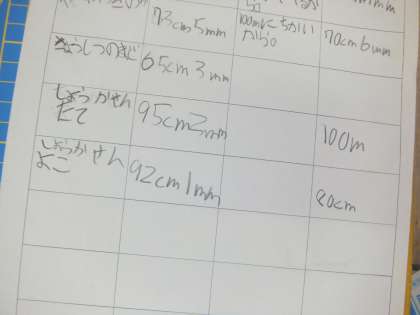 73cm5mm
100mにちかい
から。
70cm6mm
きょうしつのまど
65cm3mm
しょうかせん
たて
95cm2mm
100m
しょうかせん
よこ
92cm1mm
80cm